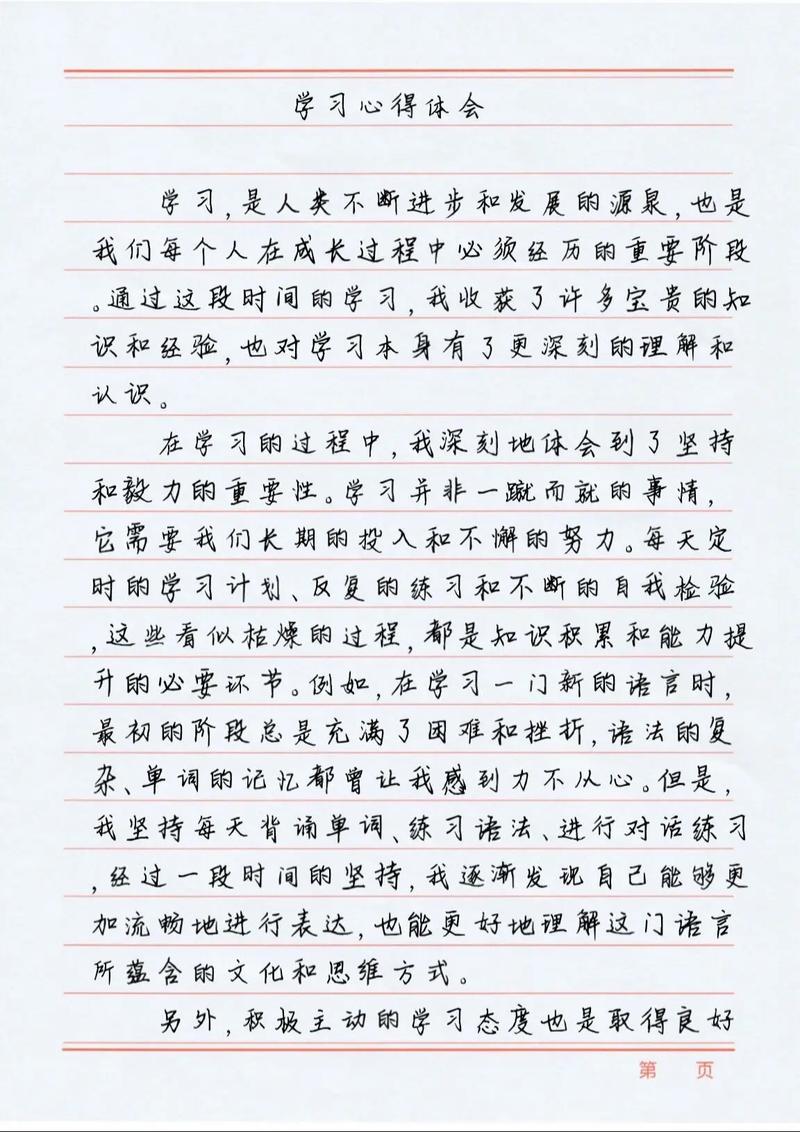 学习心得体会
学习,是人类不断进步和发展的源泉,也是
我们每个人在成长过程中必须经历的重要阶段
。通过这段时间的学习,我收获了许多宝贵的知
识和经验,也对学习本身有了更深刻的理解和
认识。
在学习的过程中,我深刻地体会到了坚持
和毅力的重要性。学习并非一蹴而就的事情,
它需要我们长期的投入和不懈的努力。每天定
时的学习计划、反复的练习和不断的自我检验
,这些看似枯燥的过程,都是知识积累和能力提
升的必要环节。例如,在学习一门新的语言时,
最初的阶段总是充满了困难和挫折,语法的复
杂、单词的记忆都曾让我感到力不从心。但是,
我坚持每天背诵单词、练习语法、进行对话练习
,经过一段时间的坚持,我逐渐发现自己能够更
加流畅地进行表达,也能更好地理解这门语言
所蕴含的文化和思维方式。
另外,积极主动的学习态度也是取得良好
第 页